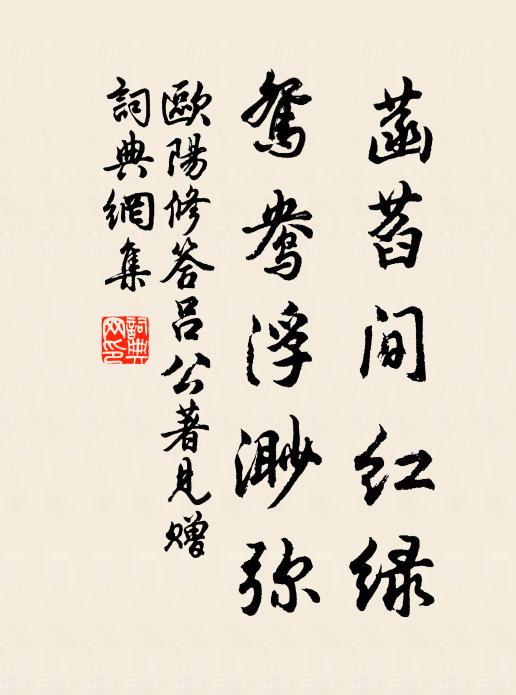 菡萏间红绿
鸳鸯浮渺弥
歐陽修答吕公著見赠
詞典網集
詞典网印